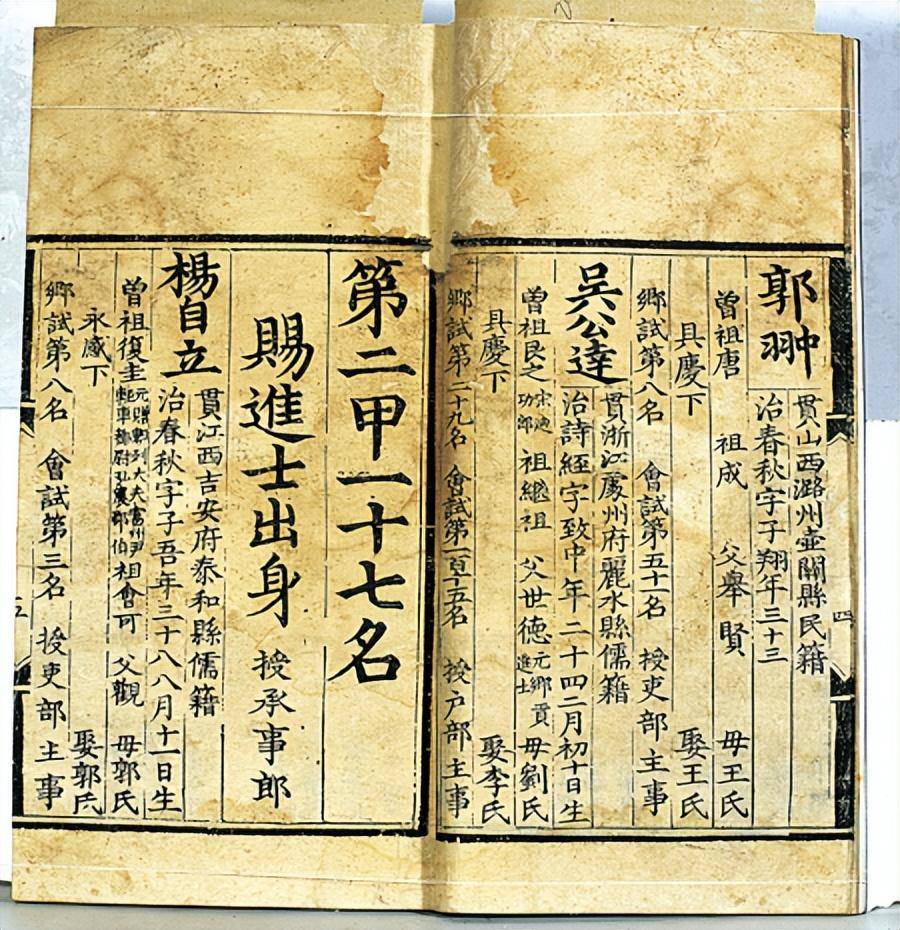 郭翀
貫山西潞州壺關縣民籍
治春秋字子翔年三十三
曾祖唐 祖成 父舉賢 母王氏
具慶下 娶王氏
鄉試第八名 會試第五十一名 授吏部主事
吳公達
貫浙江處州府麗水縣儒籍
治詩經字致中年二十四二月初十日生
曾祖良之 宋迪功郎 祖繼祖 父世德 元鄉貢進士 母劉氏
具慶下 娶李氏
鄉試第二十九名 會試第一百十五名 授戶部主事
四
第二甲一十七名
賜進士出身 授承事郎
楊自立
貫江西吉安府泰和縣儒籍
治春秋字子吾年三十八八月十一日生
曾祖復圭 元贈朝列大夫富州尹輕車都尉弘農郡伯 祖會可 父觀 母郭氏
永感下 娶郭氏
鄉試第八名 會試第三名 授吏部主事
五